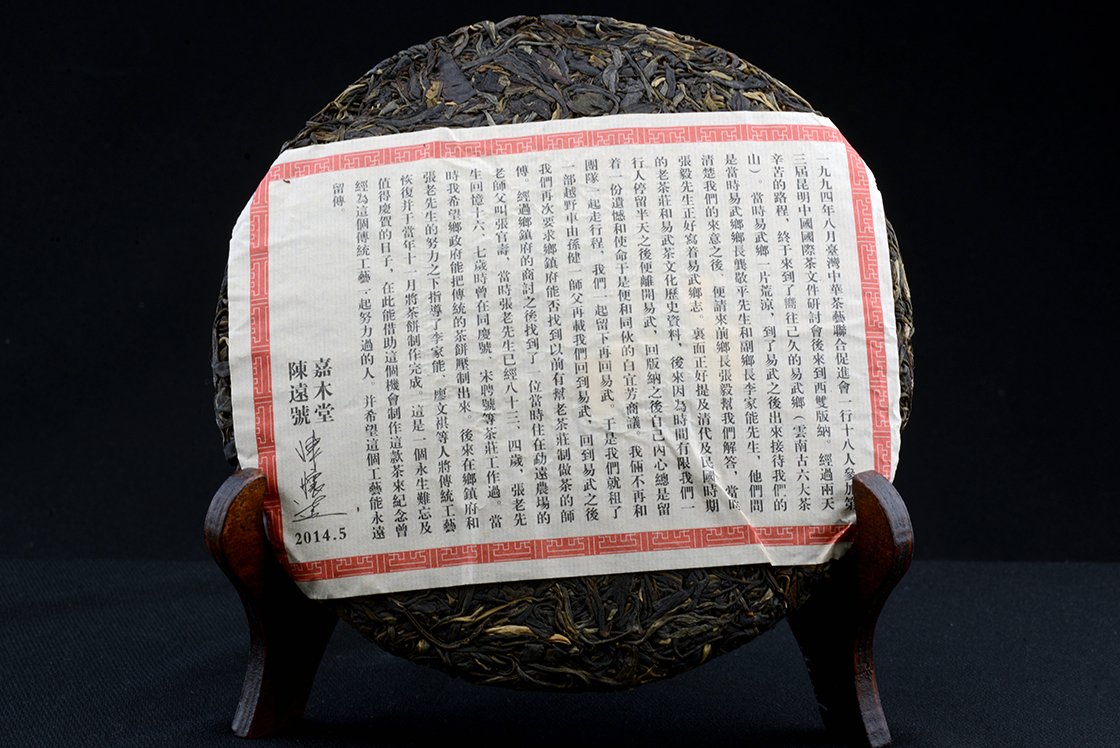 一九九四年八月臺灣中華茶藝聯合促進會一行十八人參加第
三屆昆明中國國際茶文件研討會後來到西雙版納。經過兩天
辛苦的路程，終于來到了嚮往已久的易武鄉（雲南古六大茶
山）。當時易武鄉一片荒涼，到了易武之後出來接待我們的
是當時易武鄉鄉長龔敬平先生和副鄉長李家能先生，他們問
清楚我們的來意之後，便請來前鄉長張毅幫我們解答，當時
張毅先生正好寫着易武鄉志。裏面正好提及清代及民國時期
的老茶莊和易武茶文化歷史資料，後來因為時間有限我們一
行人停留半天之後便離開易武，回版納之後自己內心總是留
着一份遺憾和使命于是便和同伙的白宜芳商議。我倆不再和
團隊一起走行程，我們一起留下再回易武。于是我們就租了
一部越野車由孫健一師父再載我們回到易武，回到易武之後
我們再次要求鄉鎮府能否找到以前有幫老茶莊制做茶的師
傅。經過鄉鎮府的商討之後找到了一位當時住在勐遠農場的
老師父叫張官壽，當時張老先生已經八十三、四歲，張老先
生回憶十六、七歲時曾在同慶號、宋聘號等茶莊工作過。當
時我希望鄉政府能把傳統的茶餅壓制出來。後來在鄉鎮府和
張老先生的努力之下指導了李家能、廖文祺等人將傳統工藝
恢復并于當年十一月將茶餅制作完成。這是一個永生難忘及
值得慶賀的日子，在此能借助這個機會制作這款茶來紀念曾
經為這個傳統工藝一起努力過的人。并希望這個工藝能永遠
留傳。
嘉木堂
陳遠號
2014.5